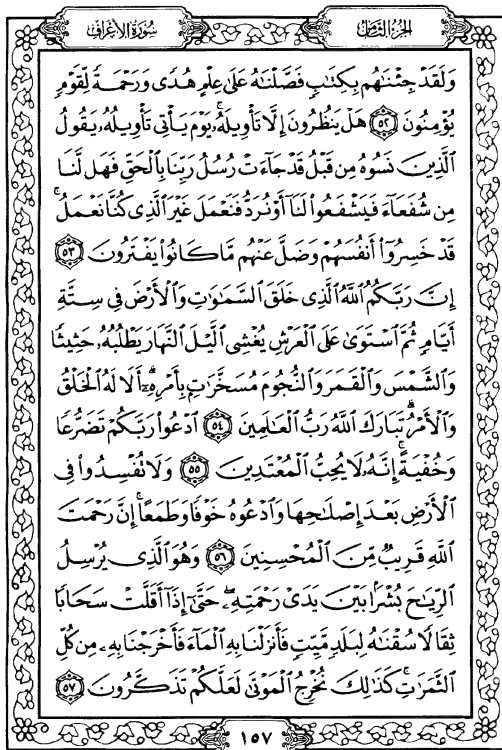 سورة الأعراف
الجزء الثامن
وَلَقَدْ جِئْنَٰهُم بِكِتَٰبٍ فَصَّلْنَٰهُ عَلَىٰ عِلْمٍ هُدًى وَرَحْمَةً لِّقَوْمٍ
يُؤْمِنُونَ ٥٢ هَلْ يَنظُرُونَ إِلَّا تَأْوِيلَهُۥ ۚ يَوْمَ يَأْتِى تَأْوِيلُهُۥ يَقُولُ
ٱلَّذِينَ نَسُوهُ مِن قَبْلُ قَدْ جَآءَتْ رُسُلُ رَبِّنَا بِٱلْحَقِّ فَهَل لَّنَا
مِن شُفَعَآءَ فَيَشْفَعُوا۟ لَنَآ أَوْ نُرَدُّ فَنَعْمَلَ غَيْرَ ٱلَّذِى كُنَّا نَعْمَلُ ۚ
قَدْ خَسِرُوٓا۟ أَنفُسَهُمْ وَضَلَّ عَنْهُم مَّا كَانُوا۟ يَفْتَرُونَ ٥٣
إِنَّ رَبَّكُمُ ٱللَّهُ ٱلَّذِى خَلَقَ ٱلسَّمَٰوَٰتِ وَٱلْأَرْضَ فِى سِتَّةِ
أَيَّامٍ ثُمَّ ٱسْتَوَىٰ عَلَى ٱلْعَرْشِ يُغْشِى ٱلَّيْلَ ٱلنَّهَارَ يَطْلُبُهُۥ حَثِيثًا
وَٱلشَّمْسَ وَٱلْقَمَرَ وَٱلنُّجُومَ مُسَخَّرَٰتٍۭ بِأَمْرِهِۦٓ ۗ أَلَا لَهُ ٱلْخَلْقُ
وَٱلْأَمْرُ ۗ تَبَارَكَ ٱللَّهُ رَبُّ ٱلْعَٰلَمِينَ ٥٤ ٱدْعُوا۟ رَبَّكُمْ تَضَرُّعًا
وَخُفْيَةً ۚ إِنَّهُۥ لَا يُحِبُّ ٱلْمُعْتَدِينَ ٥٥ وَلَا تُفْسِدُوا۟ فِى
ٱلْأَرْضِ بَعْدَ إِصْلَٰحِهَا وَٱدْعُوهُ خَوْفًا وَطَمَعًا ۚ إِنَّ رَحْمَتَ
ٱللَّهِ قَرِيبٌ مِّنَ ٱلْمُحْسِنِينَ ٥٦ وَهُوَ ٱلَّذِى يُرْسِلُ
ٱلرِّيَٰحَ بُشْرًۢا بَيْنَ يَدَىْ رَحْمَتِهِۦ ۖ حَتَّىٰٓ إِذَآ أَقَلَّتْ سَحَابًا
ثِقَالًا سُقْنَٰهُ لِبَلَدٍ مَّيِّتٍ فَأَنزَلْنَا بِهِ ٱلْمَآءَ فَأَخْرَجْنَا بِهِۦ مِن كُلِّ
ٱلثَّمَرَٰتِ ۚ كَذَٰلِكَ نُخْرِجُ ٱلْمَوْتَىٰ لَعَلَّكُمْ تَذَكَّرُونَ ٥٧
١٥٧